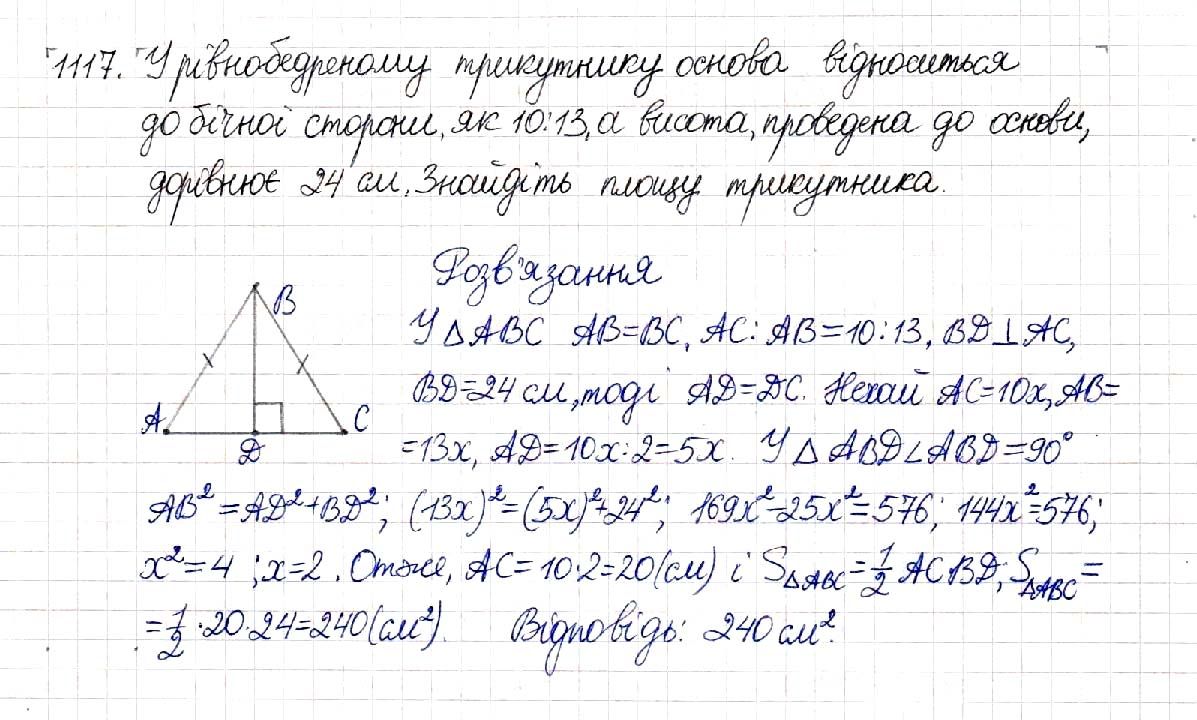 1117. У рівнобедреному трикутнику основа відноситься
до бічної сторони, як 10:13, а висота, проведена до основи,
дорівнює 24 см. Знайдіть площу трикутника.
Розв'язання
B
A
C
D
У △ABC AB=BC, AC:AB=10:13, BD⊥AC,
BD=24 см, тоді AD=DC. Нехай AC=10x, AB=
=13x, AD=10x:2=5x. У △ABD∠ABD=90°
AB²=AD²+BD²; (13x)²=(5x)²+24²; 169x²-25x²=576; 144x²=576;
x²=4; x=2. Отже, AC=10·2=20(см) і S△ABC=1/2 AC BD; S△ABC=
=1/2·20·24=240(см²). Відповідь: 240 см².